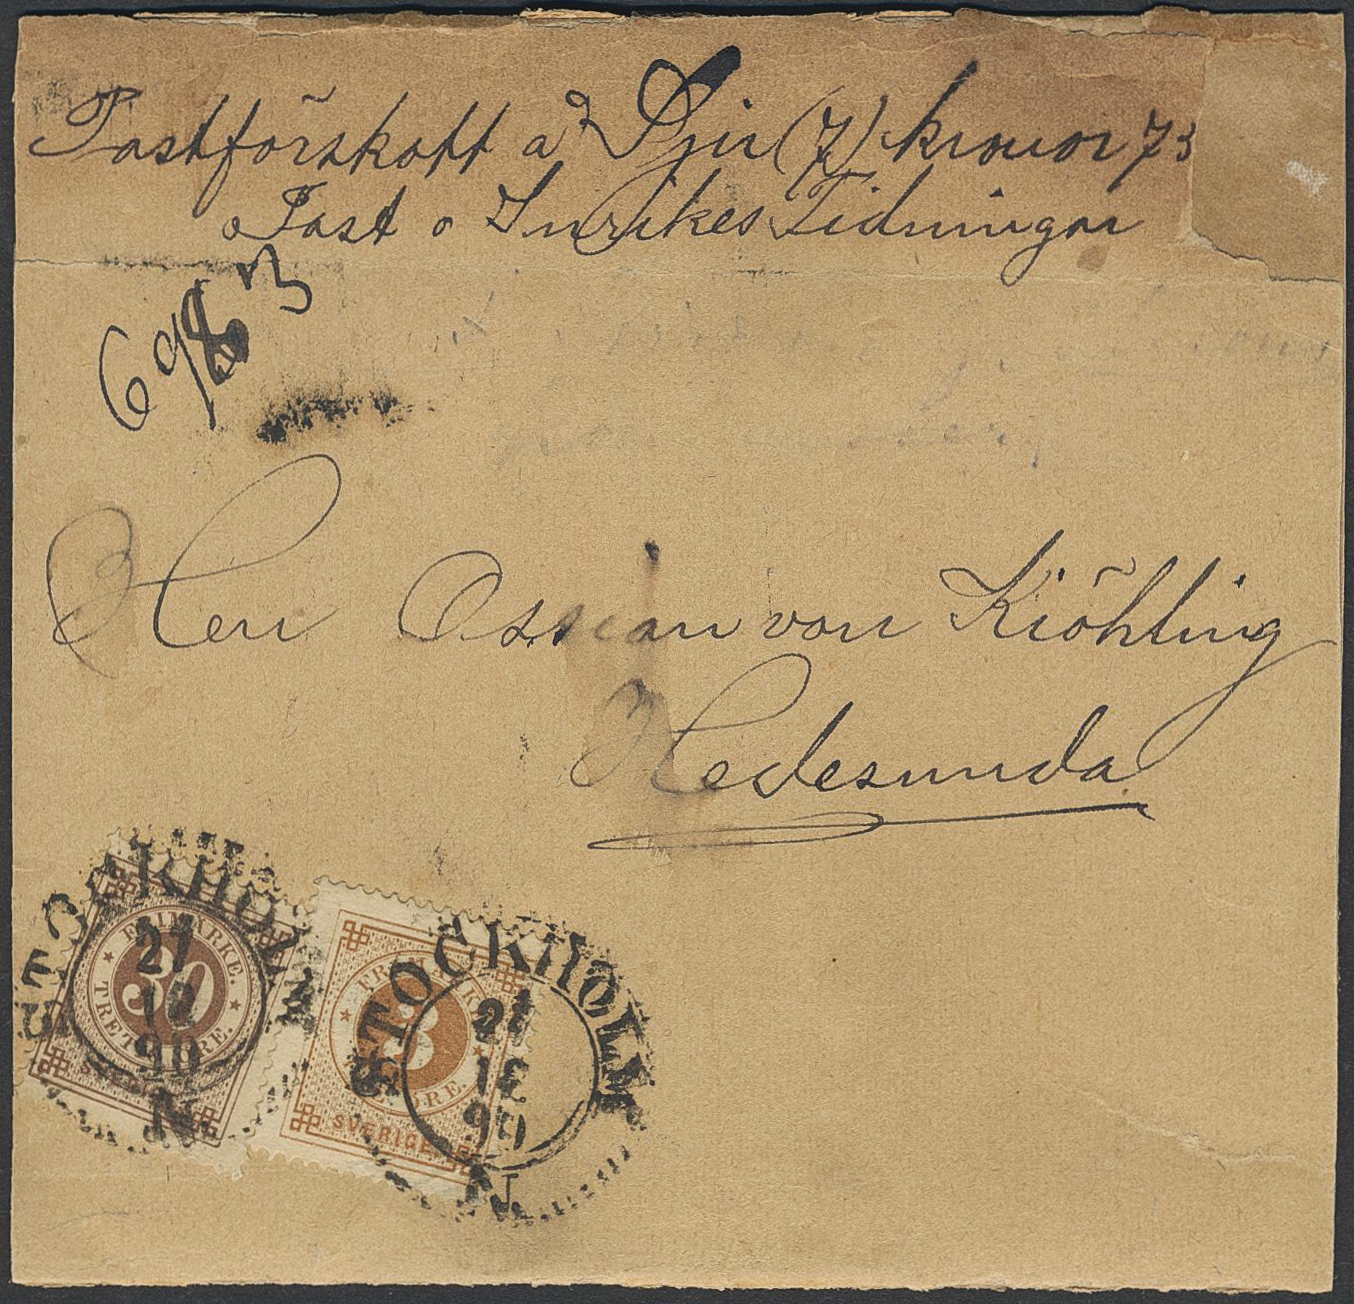 Postförskott a Sju (7) kronor 73
Post o Inrikes Tidningar
Herr Ossian von Kiöhling
Hedesunda
STOCKHOLM
27
12
90
N
FRIMÄRKE.
30
TRETTIO ÖRE.
SVERIGE
STOCKHOLM
12
90
N
FRIMÄRKE
3
ÖRE.
SVERIGE